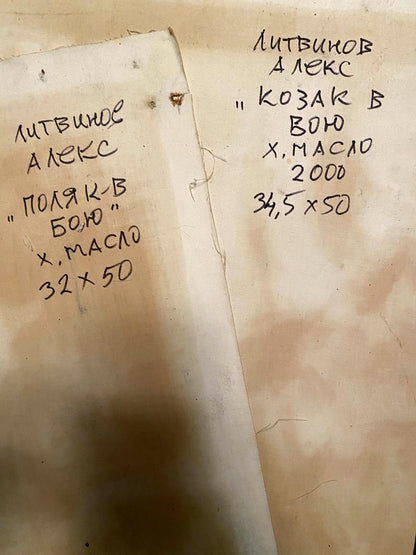 ЛИТВИНОВ
АЛЕКС
„ПОЛЯК-В
БОЮ"
Х, МАСЛО
32 х 50
ЛИТВИНОВ
АЛЕКС
„КОЗАК В
БОЮ
Х, МАСЛО
2000
34,5 х 50